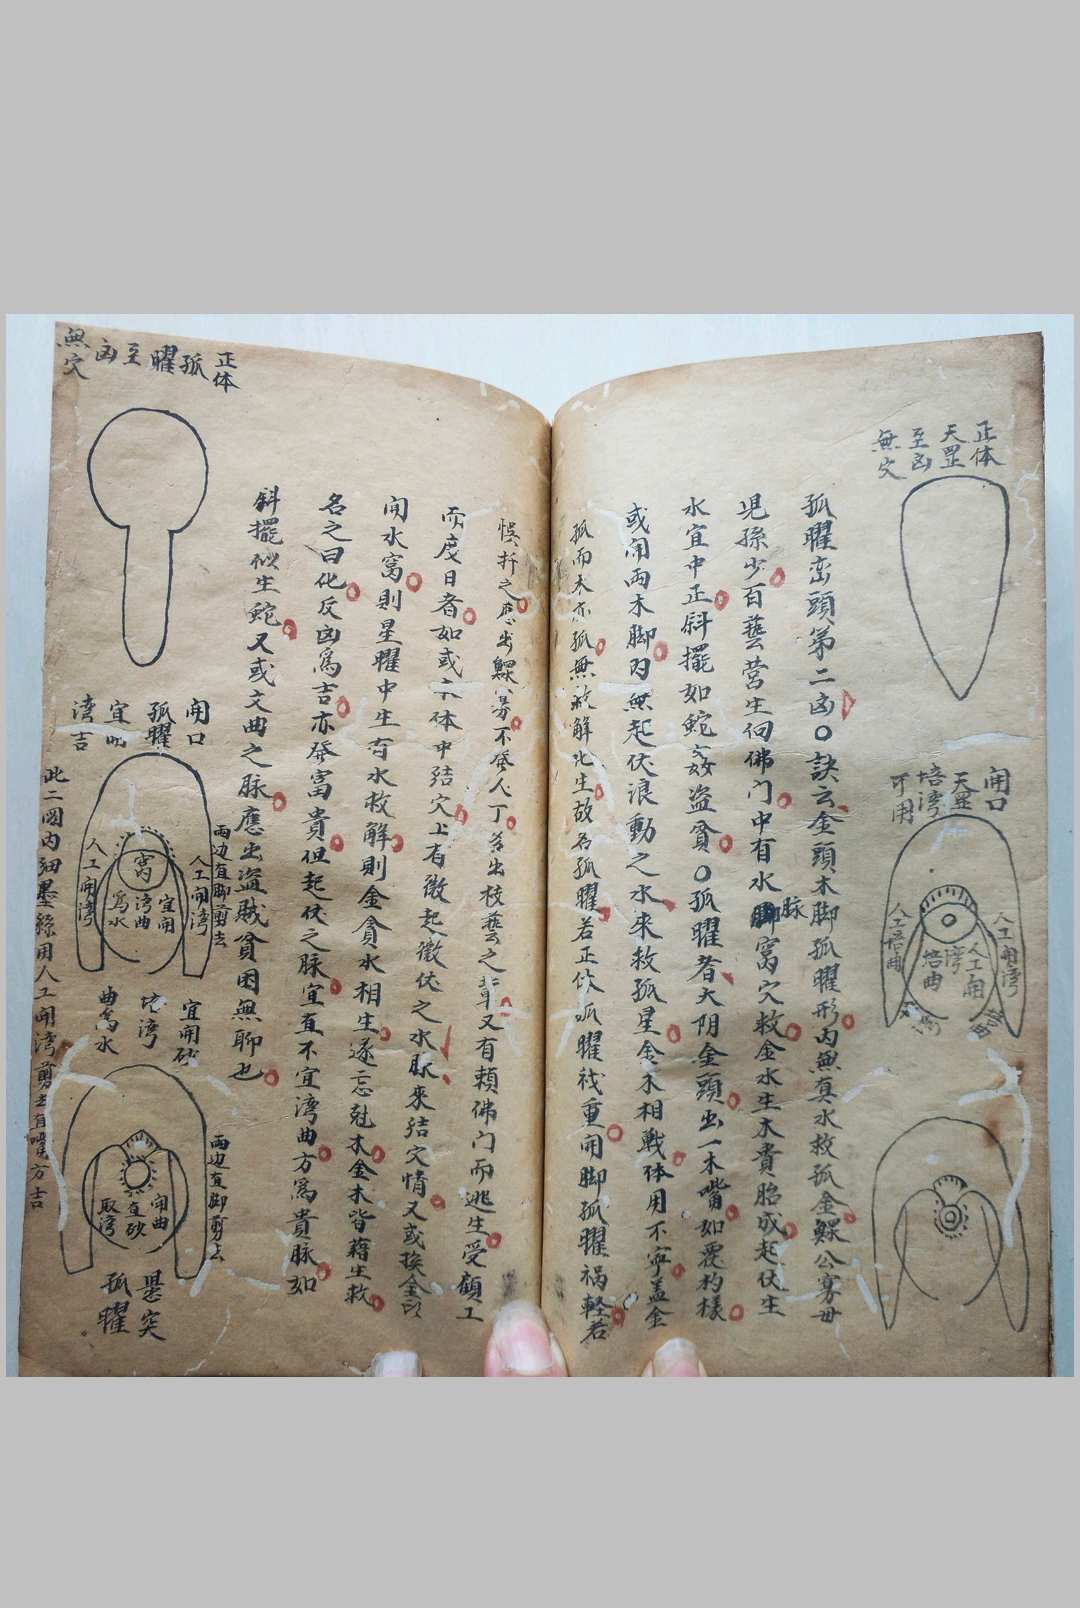 正体
天罡
至凶
無穴
開口
天罡
培湾
可用
人工開湾
人工開
湾
培曲
人工培曲
孤曜巒頭第二凶〇訣云金頭木脚孤曜形内無真水救孤金鰥公寡母
児孫少百藝营生伺佛门中有水脉窝穴救金水生木貴胎成起伏生
水宜中正斜擺如鮀姦盗貧〇孤曜者太阴金頭出一木嘴如覆杓樣
或開両木脚内無起伏浪動之水来救孤星金木相戰体用不寧盖金
孤而木亦孤無救解化生故名孤曜若正体孤曜祸重開脚孤曜祸軽若
悞扦之應出鰥寡不發人丁若出技藝之輩又有賴佛门而逃生受顧工
而度日者如或本体中结穴上有微起微伏之水脉來结穴情又或挨金
開水窝則星曜中生育水救解則金貪水相生逐忘尅木金木皆藉生救
名之曰化反凶爲吉亦發富貴但起伏之脉宜直不宜湾曲方爲貴脉如
斜擺似生鮀又或文曲之脉應出盗賊貧困無聊也
正体
孤
曜
至
凶
無穴
開口
孤曜
宜開
湾吉
両边直脚剪去
人工開湾
宜開
湾曲
爲水
窝
人工開湾
此二圖内细墨綠用人工開湾剪去直嘴方吉
宜開砂
培湾
曲爲水
両边直脚剪去
開曲
直砂
取湾
悬突
孤曜